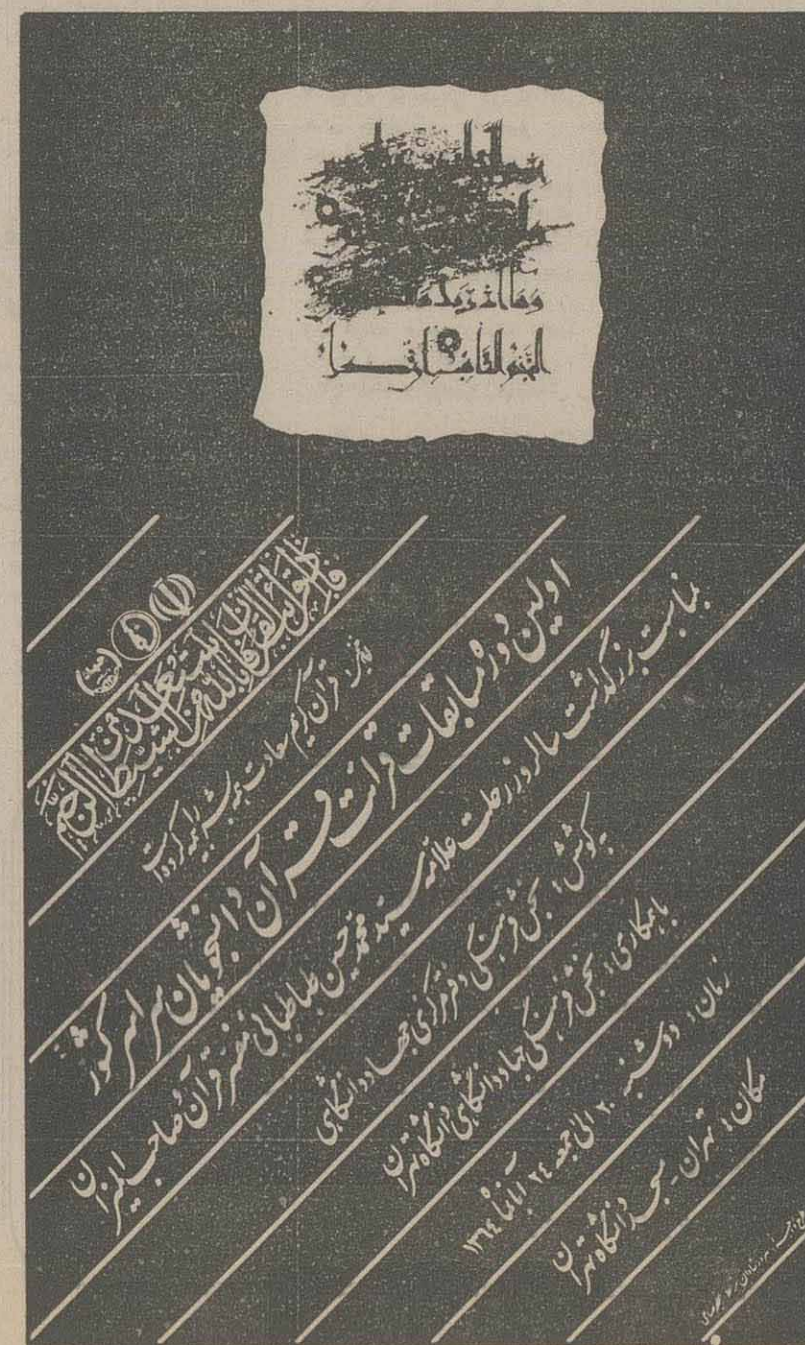 وما ادریک ما
النجم الثاقب
فَإِذَا قَرَأْتَ الْقُرْآنَ فَاسْتَعِذْ بِاللَّهِ مِنَ الشَّيْطَانِ الرَّجِيمِ
قرآن کریم سعادت همه بشر را بیمه کرده است
اولین دوره مسابقات قرائت قرآن دانشجویان سراسر کشور
بمناسبت بزرگداشت سالروز رحلت علامه سید محمد حسین طباطبائی مفسر قرآن و صاحب المیزان
به کوشش: بخش فرهنگی دفتر مرکزی جهاد دانشگاهی
با همکاری: بخش فرهنگی جهاد دانشگاهی دانشگاه تهران
زمان: دوشنبه ۲۰ الی جمعه ۲۴ آبانماه ۱۳۶۴
مکان: تهران - مسجد دانشگاه تهران